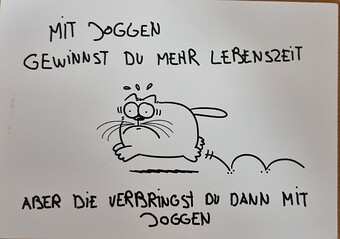 MIT JOGGEN
GEWINNST DU MEHR LEBENSZEIT
ABER DIE VERBRINGST DU DANN MIT
JOGGEN